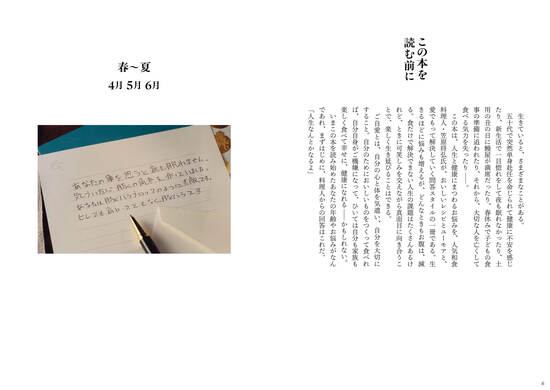 この本を
読む前に
生きていると、さまざまなことがある。
五十代で突然単身赴任を命じられて健康に不安を感じ
たり、新生活で一目惚れをして夜も眠れなかったり、土
用の丑の日に鰻屋が満席だったり、春休みで子どもの食
事の準備に追われたり。それから、大切な人を亡くして
食べる気力を失ったり──。
この本は、人生と健康にまつわるお悩みを、人気和食
料理人・笠原将弘氏が、おいしいレシピとユーモアと、
愛でもって解決していく問答スタイルの一冊である。生
きるほどに悩みも増えるが、どんなときもお腹は、減
る。食だけで解決できない人生の課題はたくさんあるけ
れど、ときに可笑しみを交えながら真面目に向き合うこ
とで、楽しく生き延びることはできる。
ご自愛とは、自分の心と体を気遣い、自分を大切に
すること。自分のためにおいしいものをつくって食べれ
ば、自分自身がご機嫌になって、ひいては自分も家族も
楽しく食べて幸せに、健康になれる──かもしれない。
いまこの本を読み始めたあなたの年齢やお悩みがなん
であれ、まずはじめに、料理人からの回答はこれだ。
「人生なんとかなるよ」
4
春〜夏
4月 5月 6月
あなたの事を思うと夜も眠れません。